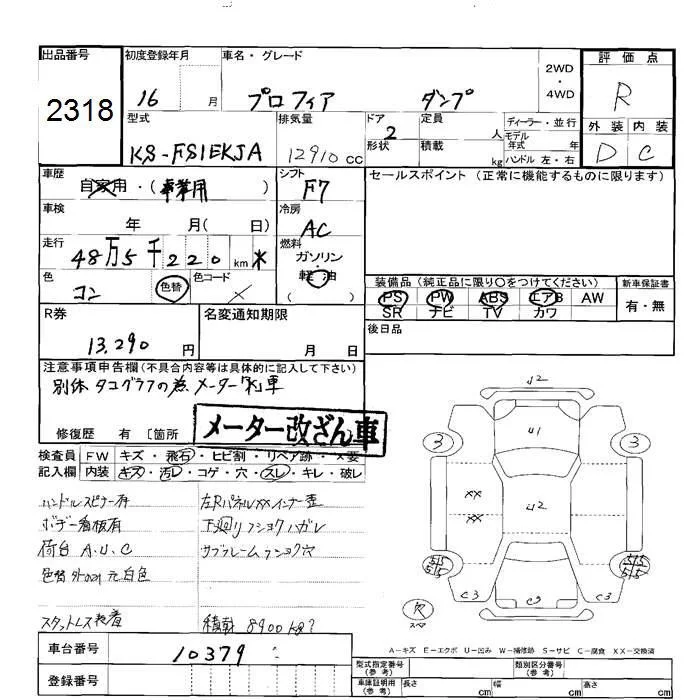 出品番号
2318
初度登録年月
16 月
車名・グレード
プロフィア ダンプ
2WD
・
4WD
評価点
R
外装 内装
D C
型式
KS-FS1EKJA
排気量
12910 cc
ドア
2
形状
定員
人
積載
kg
ディーラー・並行
モデル
年式 年
ハンドル 左・右
車歴
自家用・(事業用)
シフト
F7
車検
年 月( 日)
冷房
AC
走行
48万5千220 km *
燃料
ガソリン
・
軽油
( )
色
コン
色替
色コード
R券
13,290 円
名変通知期限
月 日
セールスポイント(正常に機能するものに限ります)
装備品(純正品に限り〇をつけてください)
PS PW ABS エアB AW
SR ナビ TV カワ
新車保証書
有・無
後日品
注意事項申告欄(不具合内容等は具体的に記入して下さい)
別体タコグラフの為メーター改車
修復歴 有 〔箇所
メーター改ざん車
検査員 FW キズ・飛石・ヒビ割・リペア跡・×要
記入欄 内装 キズ・汚レ・コゲ・穴・スレ・キレ・破レ
ハンドルスピナー有
ボデー看板有
荷台 A.U.C
色替 元白色
スタットレス装着
左RパネルXXインナー歪
下廻りフショクハガレ
サブフレームフショク穴
積載 8900kg?
J2
U1
3
3
XX
XX
U2
5/5
5/5
5/5
5/5
C3
C3
R
スペア
A-キズ E-エクボ U-凹み W-補修跡 S-サビ C-腐食 XX-交換済
車台番号
10379
登録番号
型式指定番号
(参考)
類別区分番号
(参考)
車庫証明用
(参考)
長さ cm
幅 cm
高さ cm